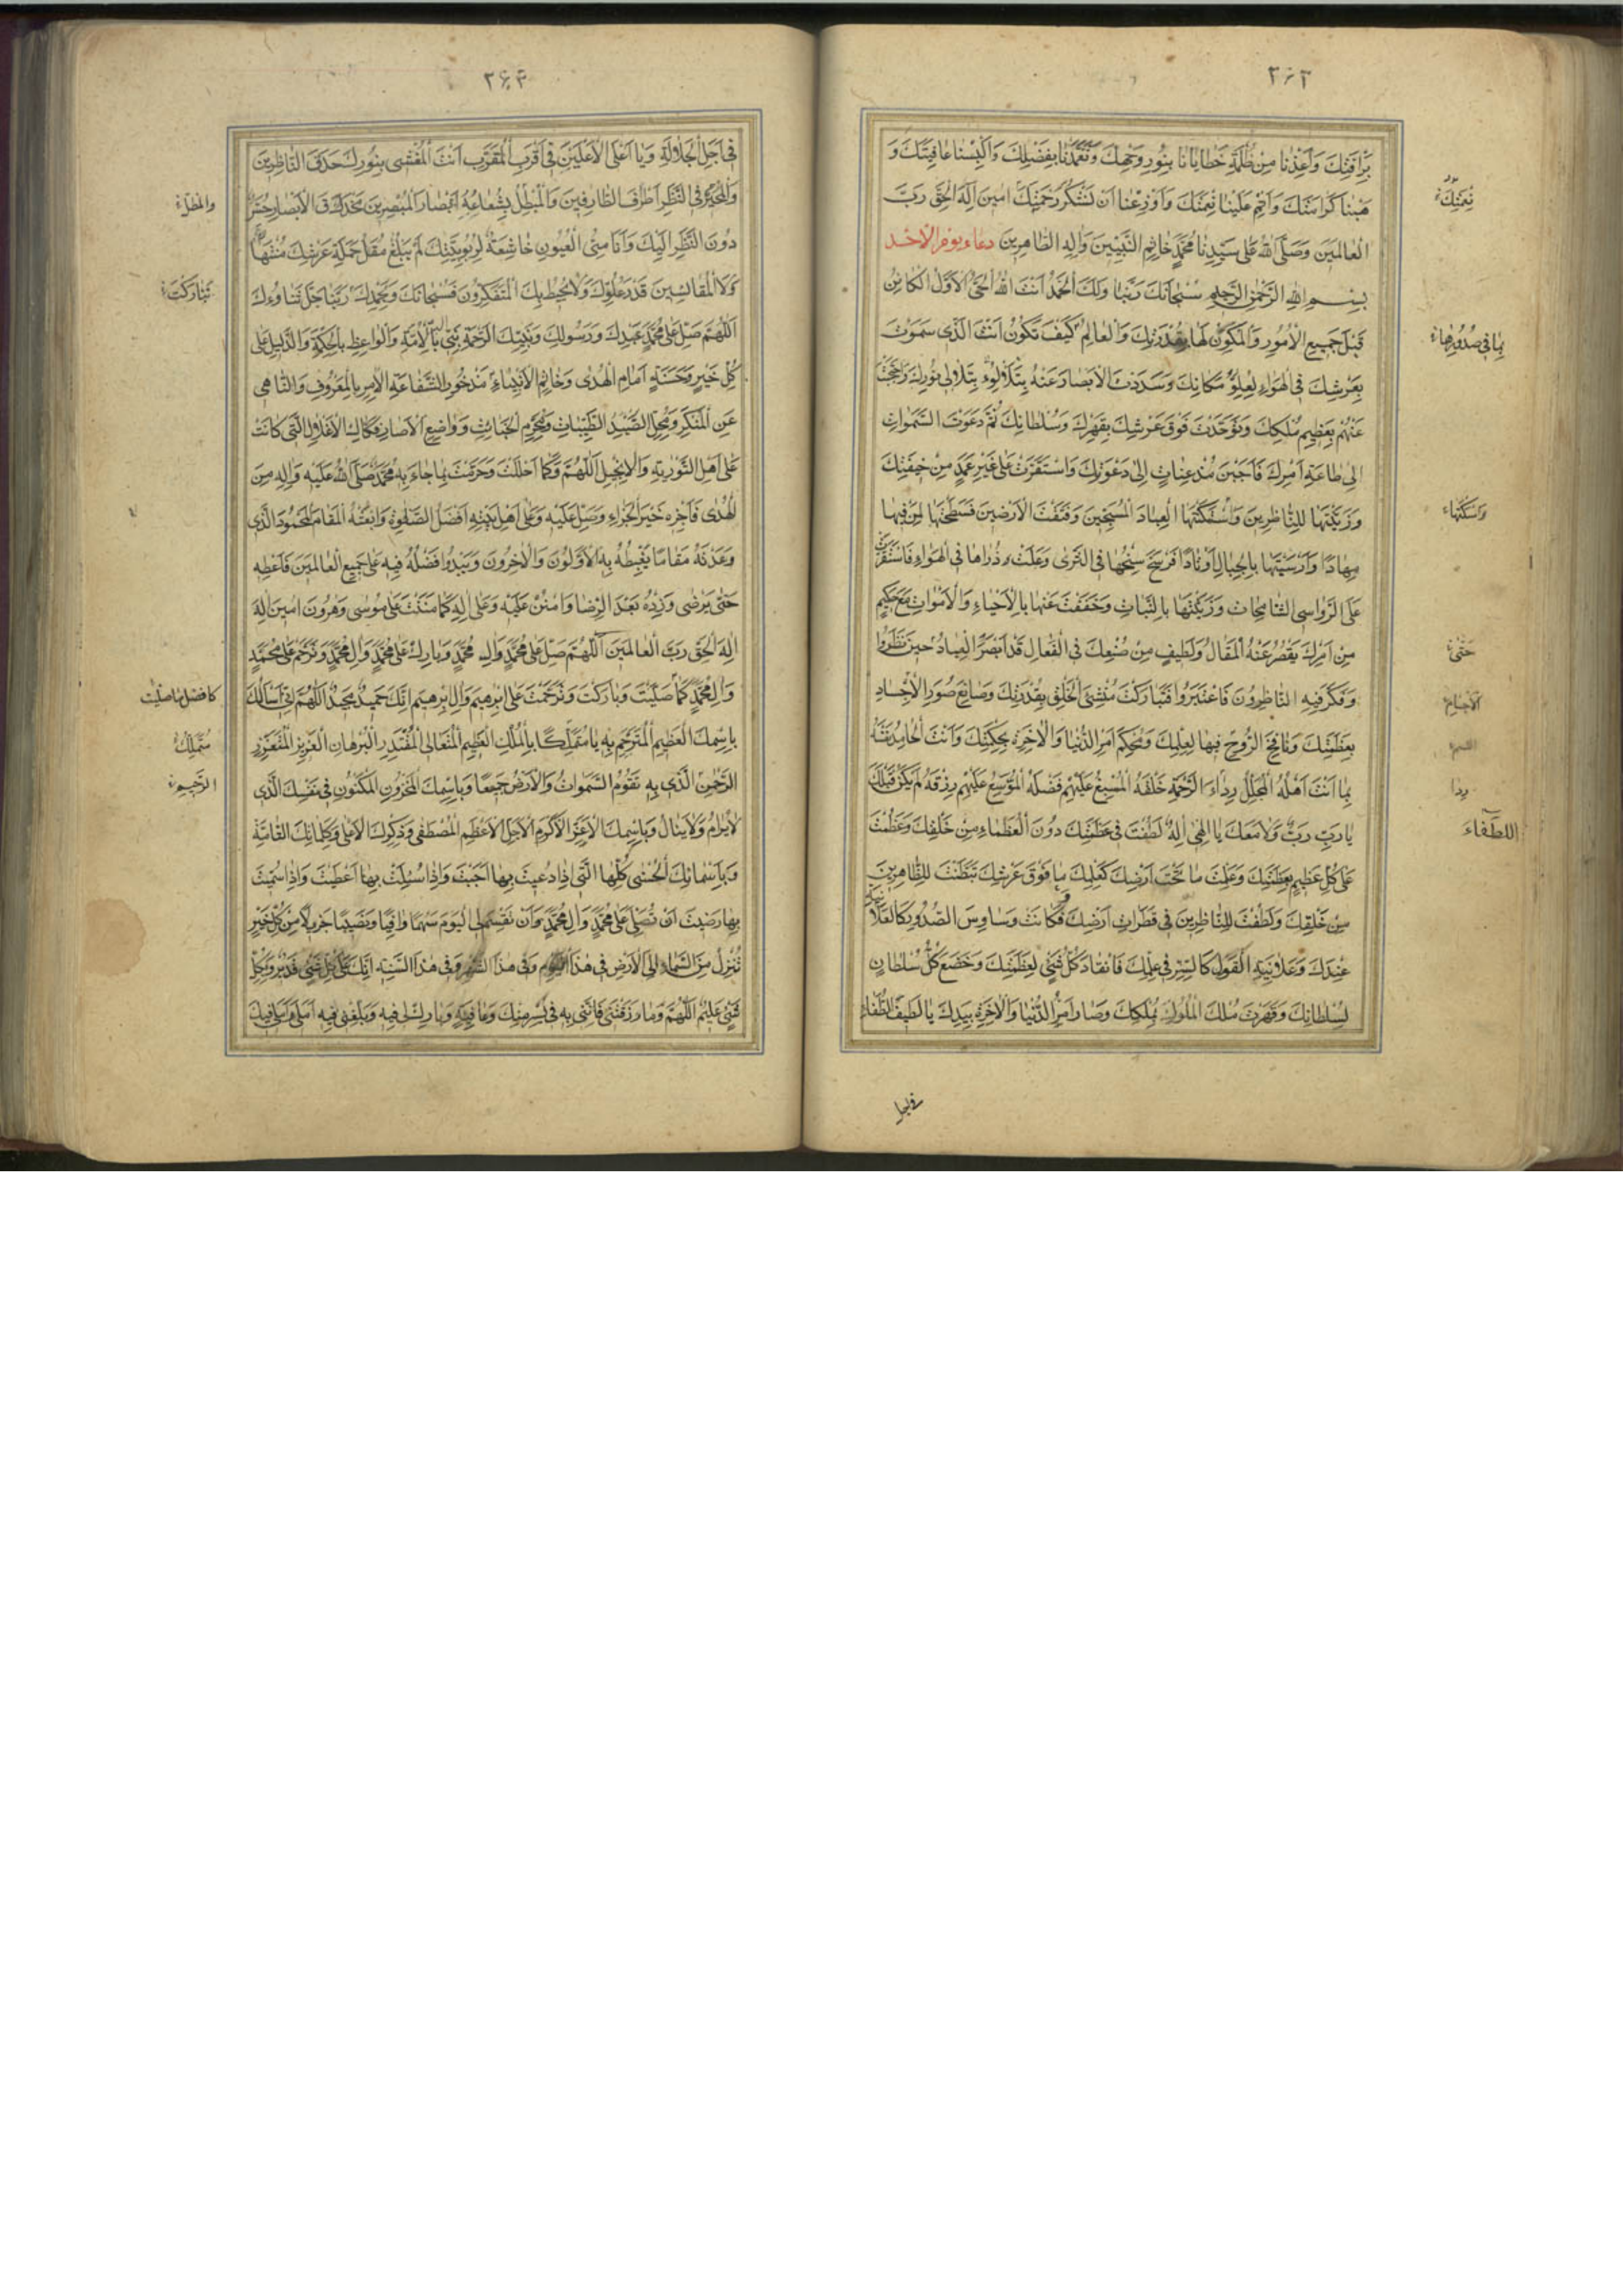 ۲۶۳
بِرَأْفَتِكَ وَأَعِذْنا مِنْ ظُلْمَةِ خَطايانا بِنُورِ وَجْهِكَ وَتَغَمَّدْنا بِفَضْلِكَ وَأَلْبِسْنا عافِيَتَكَ وَ
هَبْنا كَرامَتَكَ وَأَتِمَّ عَلَيْنا نِعْمَتَكَ وَأَوْزِعْنا أَنْ نَشْكُرَ رَحْمَتَكَ امينَ إِلهَ الْحَقِّ رَبَّ
الْعالَمينَ وَصَلَّى اللهُ عَلى سَيِّدِنا مُحَمَّدٍ خاتِمِ النَّبِيّينَ وَالِهِ الطّاهِرينَ دعاء يوم الاحد
بِسْمِ اللهِ الرَّحْمنِ الرَّحيمِ سُبْحانَكَ رَبَّنا وَلَكَ الْحَمْدُ أَنْتَ اللهُ الْحَىُّ الْأَوَّلُ الْكائِنُ
قَبْلَ جَميعِ الْأُمُورِ وَالْمُكَوِّنُ لَها بِقُدْرَتِكَ وَالْعالِمُ كَيْفَ تَكُونُ أَنْتَ الَّذى سَمَوْتَ
بِعَرْشِكَ فِى الْهَواءِ لِعُلُوِّ مَكانِكَ وَسَدَدْتَ الْأَبْصارَ عَنْهُ بِتَلَأْلُؤِ
عَنْهُمْ بِعَظيمِ مُلْكِكَ وَتَوَحَّدْتَ فَوْقَ عَرْشِكَ بِقَهْرِكَ وَسُلْطانِكَ ثُمَّ دَعَوْتَ السَّمواتِ
إِلى طاعَةِ أَمْرِكَ فَأَجَبْنَ مُذْعِناتٍ إِلى دَعْوَتِكَ وَاسْتَقَرَّتْ عَلى غَيْرِ عَمَدٍ مِنْ خيفَتِكَ
وَزَيَّنْتَها لِلنّاظِرينَ وَأَسْكَنْتَهَا الْعِبادَ الْمُسَبِّحينَ وَفَتَقْتَ الْأَرَضينَ فَسَطَحْتَها لِمَنْ فيها
مِهادًا وَأَرْسَيْتَها بِالْجِبالِ أَوْتادًا فَرَسَخَ سِنْخُها فِى الثَّرى وَعَلَتْ ذُراها فِى الْهَواءِ فَاسْتَقَرَّتْ
عَلَى الرَّواسِى الشّامِخاتِ وَزَيَّنْتَها بِالنَّباتِ وَخَفَّفْتَ عَنْها بِالْأَحْياءِ وَالْأَمْواتِ مَعَ حَكيمٍ
مِنْ أَمْرِكَ يَقْصُرُ عَنْهُ الْمَقالُ وَلَطيفٍ مِنْ صُنْعِكَ فِى الْفَعالِ قَدْ أَبْصَرَ الْعِبادُ حينَ نَظَرُوا
وَفَكَّرَ فيهِ النّاظِرُونَ فَاعْتَبَرُوا فَتَبارَكْتَ مُنْشِئَ الْخَلْقِ بِقُدْرَتِكَ وَصانِعَ صُوَرِ الْأَجْسادِ
بِعَظَمَتِكَ وَنافِخَ الرُّوحِ فيها لِعِلْمِكَ وَمُحْكِمَ أَمْرِ الدُّنْيا وَالْاخِرَةِ بِحِكْمَتِكَ وَأَنْتَ الْحامِدُ نَفْسَهُ
بِما أَنْتَ أَهْلُهُ الْمُجَلِّلُ رِداءَ الرَّحْمَةِ خَلْقَهُ الْمُسْبِغُ عَلَيْهِمْ فَضْلَهُ الْمُوَسِّعُ عَلَيْهِمْ رِزْقَهُ لَمْ يَكُنْ قَبْلَكَ
يا رَبِّ رَبٌّ وَلا مَعَكَ يا إِلهى إِلهٌ لَطُفْتَ فى عَظَمَتِكَ دُونَ الْعُظَماءِ مِنْ خَلْقِكَ وَعَظُمْتَ
عَلى كُلِّ عَظيمٍ بِعَظَمَتِكَ وَعَلِمْتَ ما تَحْتَ أَرْضِكَ كَعِلْمِكَ ما فَوْقَ عَرْشِكَ تَبَطَّنْتَ لِلظّاهِرينَ
مِنْ خَلْقِكَ وَلَطُفْتَ لِلنّاظِرينَ فى قَطَراتِ أَرْضِكَ فَكانَتْ وَساوِسُ الصُّدُورِ كَالْعَلانِيَةِ
عِنْدَكَ وَعَلانِيَةُ الْقَوْلِ كَالسِّرِّ فى عِلْمِكَ فَانْقادَ كُلُّ شَىْءٍ لِعَظَمَتِكَ وَخَضَعَ كُلُّ سُلْطانٍ
لِسُلْطانِكَ وَقَهَرْتَ مُلْكَ الْمُلُوكِ بِمُلْكِكَ وَصارَ أَمْرُ الدُّنْيا وَالْاخِرَةِ بِيَدِكَ يا لَطيفَ اللُّطَفاءِ
نِعْمَتِكَ
بِما فى صُدُورِها
وَاسْكَنْتَها
حَتّى
رِدا
اللطفاء
۲۶۴
فى أَجَلِّ الْجَلالَةِ وَيا أَعْلَى الْأَعْلَيْنَ فى أَقْرَبِ الْقُرْبِ أَنْتَ الْمُغْشى بِنُورِكَ حَدَقَ النّاظِرينَ
وَالْمُحَيِّرُ فِى النَّظَرِ أَطْرافَ الطّارِفينَ وَالْمُظِلُّ بِشُعاعِهِ أَبْصارَ الْمُبْصِرينَ فَحَدَقُ الْأَبْصارِ حُسَّرٌ
دُونَ النَّظَرِ إِلَيْكَ وَأَناسِىُّ الْعُيُونِ خاشِعَةٌ لِرُبُوبِيَّتِكَ لَمْ يَبْلُغْ مُقَلُ حَمَلَةِ عَرْشِكَ مُنْتَهاها
وَلَا الْمَقائِسينَ قَدْرَ عُلُوِّكَ وَلا يُحيطُ بِكَ الْمُتَفَكِّرُونَ فَسُبْحانَكَ وَبِحَمْدِكَ رَبَّنا جَلَّ ثَناؤُكَ
اَللّهُمَّ صَلِّ عَلى مُحَمَّدٍ عَبْدِكَ وَرَسُولِكَ وَنَبِيِّكَ الرَّحْمَةِ الْأُمَّةِ وَالْواعِظِ بِالْحِكْمَةِ وَالدَّليلِ عَلى
كُلِّ خَيْرٍ وَحَسَنَةٍ إِمامِ الْهُدى وَخاتِمِ الْأَنْبِياءِ مَذْخُورِ الشَّفاعَةِ الْامِرِ بِالْمَعْرُوفِ وَالنّاهى
عَنِ الْمُنْكَرِ وَمُحِلِّ الطَّيِّباتِ وَمُحَرِّمِ الْخَبائِثِ وَواضِعِ الْاصارِ وَفَكّاكِ الْأَغْلالِ الَّتى كانَتْ
عَلى أَهْلِ التَّوْريةِ وَالْإِنْجيلِ اَللّهُمَّ وَكَما أَحْلَلْتَ وَحَرَّمْتَ بِما جاءَ بِهِ مُحَمَّدٌ صَلَّى اللهُ عَلَيْهِ وَالِهِ مِنَ
الْهُدى فَاجْزِهِ خَيْرَ الْجَزاءِ وَصَلِّ عَلَيْهِ وَعَلى أَهْلِ بَيْتِهِ أَفْضَلَ الصَّلوةِ وَابْعَثْهُ الْمَقامَ الْمَحْمُودَ الَّذى
وَعَدْتَهُ مَقامًا يَغْبِطُهُ بِهِ الْأَوَّلُونَ وَالْاخِرُونَ وَيَبْدُو فَضْلُهُ فيهِ عَلى جَميعِ الْعالَمينَ فَأَعْطِهِ
حَتّى يَرْضى وَزِدْهُ بَعْدَ الرِّضا وَامْنُنْ عَلَيْهِ وَعَلى الِهِ كَما مَنَنْتَ عَلى مُوسى وَهرُونَ امينَ إِلهَ
إِلهَ الْحَقِّ رَبَّ الْعالَمينَ اَللّهُمَّ صَلِّ عَلى مُحَمَّدٍ وَالِ مُحَمَّدٍ وَبارِكْ عَلى مُحَمَّدٍ وَالِ مُحَمَّدٍ وَتَرَحَّمْ عَلى مُحَمَّدٍ
وَالِ مُحَمَّدٍ كَما صَلَّيْتَ وَبارَكْتَ وَتَرَحَّمْتَ عَلى إِبْرهيمَ وَالِ إِبْرهيمَ إِنَّكَ حَميدٌ مَجيدٌ اَللّهُمَّ إِنّى أَسْأَلُكَ
بِاسْمِكَ الْعَظيمِ الْمُتَرَحَّمِ بِهِ يا مُتَمَلِّكًا بِالْمُلْكِ الْعَظيمِ الْمُتَعالِى الْمُقْتَدِرِ الْبُرْهانِ الْعَزيزِ الْمُتَعَزِّزِ
الرَّحْمنِ الَّذى بِهِ تَقُومُ السَّمواتُ وَالْأَرْضُ جَميعًا وَبِاسْمِكَ الْمَخْزُونِ الْمَكْنُونِ فى نَفْسِكَ الَّذى
لا يُرامُ وَلا يُنالُ وَبِاسْمِكَ الْأَعَزِّ الْأَكْرَمِ الْأَجَلِّ الْأَعْظَمِ الْمُصْطَفى وَذِكْرِكَ الْأَعْلى وَكَلِماتِكَ التّامَّةِ
وَبِأَسْمائِكَ الْحُسْنى كُلِّها الَّتى إِذا دُعيتَ بِها أَجَبْتَ وَإِذا سُئِلْتَ بِها أَعْطَيْتَ وَإِذا سُمّيتَ
بِها رَضيتَ أَنْ تُصَلِّىَ عَلى مُحَمَّدٍ وَالِ مُحَمَّدٍ وَأَنْ تَقْسِمَ لِى الْيَوْمَ سَهْمًا وافِيًا وَنَصيبًا جَزيلًا مِنْ كُلِّ خَيْرٍ
تُنْزِلُ مِنَ السَّماءِ إِلَى الْأَرْضِ فى هذَا الْيَوْمِ وَفى هذَا الشَّهْرِ وَفى هذِهِ السَّنَةِ إِنَّكَ عَلى كُلِّ شَىْءٍ قَديرٌ وَبِكُلِّ
شَىْءٍ عَليمٌ اَللّهُمَّ وَما رَزَقْتَنى فَأْتِنى بِهِ فى يُسْرٍ مِنْكَ وَعافِيَةٍ وَبارِكْ لى فيهِ وَبَلِّغْنى فيهِ أَمَلى وَأَمَلى فيكَ
تَبارَكْتَ
كافضل ما صليت
مُتَمَلِّك
الرَّحيم